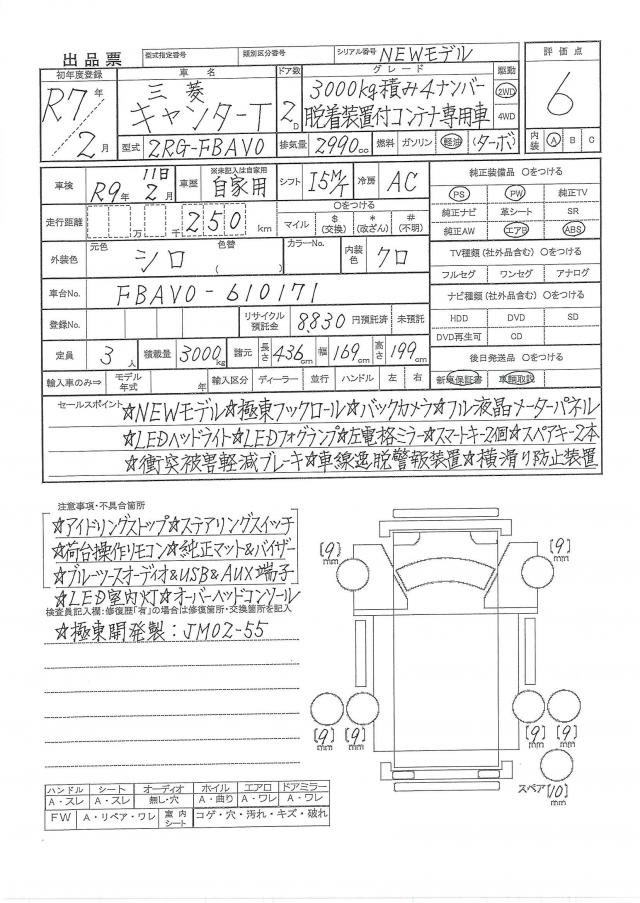 出品票 型式指定番号 類別区分番号 シリアル番号 NEWモデル
評価点
初年度登録 車名 ドア数 グレード 駆動
R7年 三菱 3000kg積み4ナンバー 2WD
キャンターT 2D 脱着装置付コンテナ専用車 4WD
6
2月 型式 2RG-FBAV0 排気量 2990cc 燃料 ガソリン 軽油 (ターボ) 内装 A B C
車検 R9年 11日 2月 車歴 ※未記入は自家用 自家用 シフト I5M/T 冷房 AC
純正装備品 〇をつける
PS PW 純正TV
走行距離 万 千 250km
〇をつける
マイル $(交換) *(改ざん) #(不明)
純正ナビ 革シート SR
純正AW エアB ABS
外装色 元色 シロ 色替 ( ) カラーNo. 内装色 クロ
TV種類(社外品含む) 〇をつける
フルセグ ワンセグ アナログ
車台No. FBAV0-610171
ナビ種類(社外品含む) 〇をつける
登録No. リサイクル預託金 8830円預託済 未預託
HDD DVD SD
DVD再生可 CD
定員 3人 積載量 3000kg 諸元 長さ 436cm 幅 169cm 高さ 199cm
後日発送品 〇をつける
輸入車のみ⇒ モデル年式 年 輸入区分 ディーラー 並行 ハンドル 左 右 新車保証書 車輌取説
セールスポイント ☆NEWモデル☆極東フックロール☆バックカメラ☆フル液晶メーターパネル
☆LEDヘッドライト☆LEDフォグランプ☆左電格ミラー☆スマートキー2個☆スペアキー2本
☆衝突被害軽減ブレーキ☆車線逸脱警報装置☆横滑り防止装置
注意事項・不具合箇所
☆アイドリングストップ☆ステアリングスイッチ
☆荷台操作リモコン☆純正マット&バイザー
☆ブルーツースオーディオ&USB&AUX端子
☆LED室内灯☆オーバーヘッドコンソール
検査員記入欄:修復歴「有」の場合は修復箇所・交換箇所を記入
☆極東開発製:JM02-55
[9]mm [9]mm
[9]mm [9]mm [9]mm [9]mm
スペア[10]mm
ハンドル シート オーディオ ホイル エアロ ドアミラー
A・スレ A・スレ 無し・穴 A・曲り A・ワレ A・ワレ
FW A・リペア・ワレ 室内シート コゲ・穴・汚れ・キズ・破れ